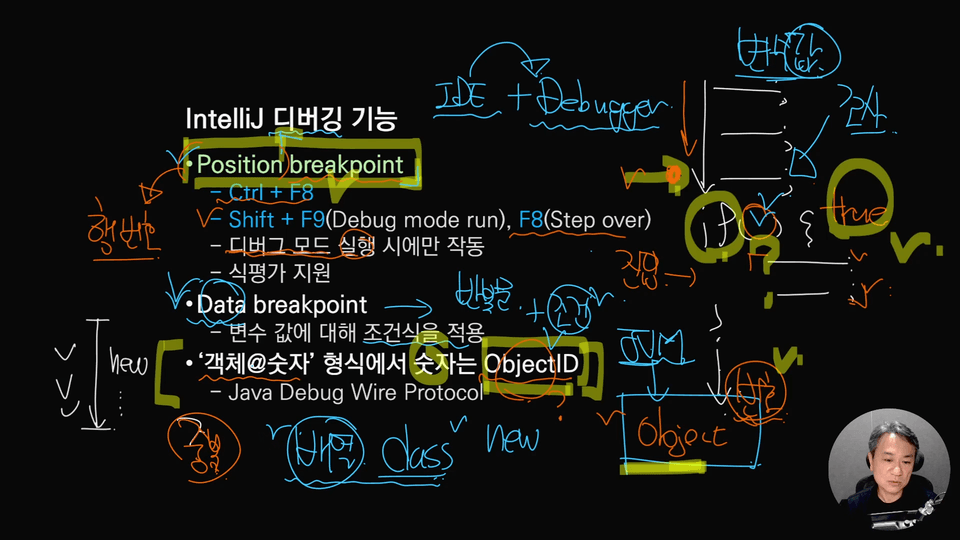 변수 값
IDE + Debugger
감사
IntelliJ 디버깅 기능
• Position breakpoint
– Ctrl + F8
– Shift + F9(Debug mode run), F8(Step over)
– 디버그 모드 실행 시에만 작동
– 식평가 지원
행번호
if ( ) {
true
진입 →
• Data breakpoint
→ 반복문 + 조건
– 변수 값에 대해 조건식을 적용
• ‘객체@숫자’ 형식에서 숫자는 ObjectID
– Java Debug Wire Protocol
new
JVM
?
Object
배열 class new